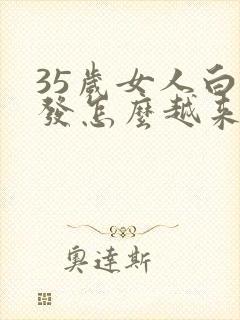 35歲女人白
發怎麼越來
奧達斯